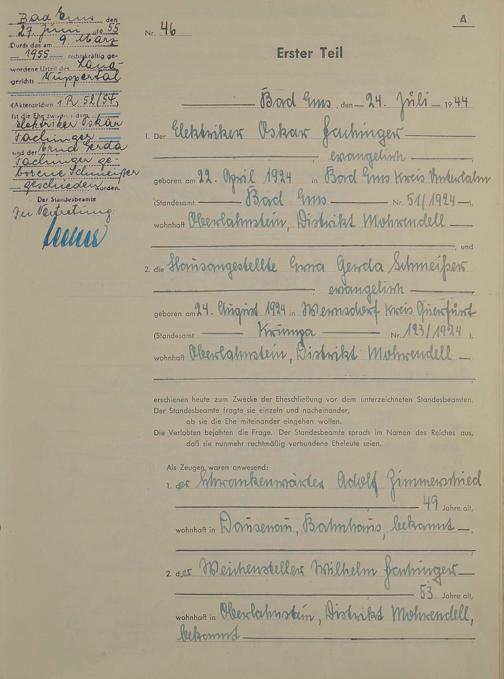 Bad Ems, den
27. Juni 1955
Durch das am 9. März
1955 rechtskräftig ge-
wordene Urteil des Land-
gerichts Wuppertal
(Aktenzeichen 1 R 52/54)
ist die Ehe zwischen dem
Elektriker Oskar
Fachinger
und der Erna Gerda
Fachinger ge-
borene Schmeißer
geschieden worden.
Der Standesbeamte
In Vertretung
A
Nr. 46
Erster Teil
Bad Ems, den 24. Juli 1944
1. Der Elektriker Oskar Fachinger
evangelisch
geboren am 22. April 1924 in Bad Ems Kreis Unterlahn
(Standesamt Bad Ems Nr. 51/1924),
wohnhaft Oberlahnstein, Distrikt Mohrendell
, und
2. die Hausangestellte Erna Gerda Schmeißer
evangelisch
geboren am 24. August 1924 in Wernsdorf Kreis Querfurt
(Standesamt Krumpa Nr. 123/1924),
wohnhaft Oberlahnstein, Distrikt Mohrendell
erschienen heute zum Zwecke der Eheschließung vor dem unterzeichneten Standesbeamten.
Der Standesbeamte fragte sie einzeln und nacheinander,
ob sie die Ehe miteinander eingehen wollen.
Die Verlobten bejahten die Frage. Der Standesbeamte sprach im Namen des Reiches aus,
daß sie nunmehr rechtmäßig verbundene Eheleute seien.
Als Zeugen waren anwesend:
1. der Schrankenwärter Adolf Zimmerschied
49 Jahre alt,
wohnhaft in Dausenau, Bahnhaus, bekannt
2. der Weichensteller Wilhelm Fachinger
53 Jahre alt,
wohnhaft in Oberlahnstein, Distrikt Mohrendell,
bekannt